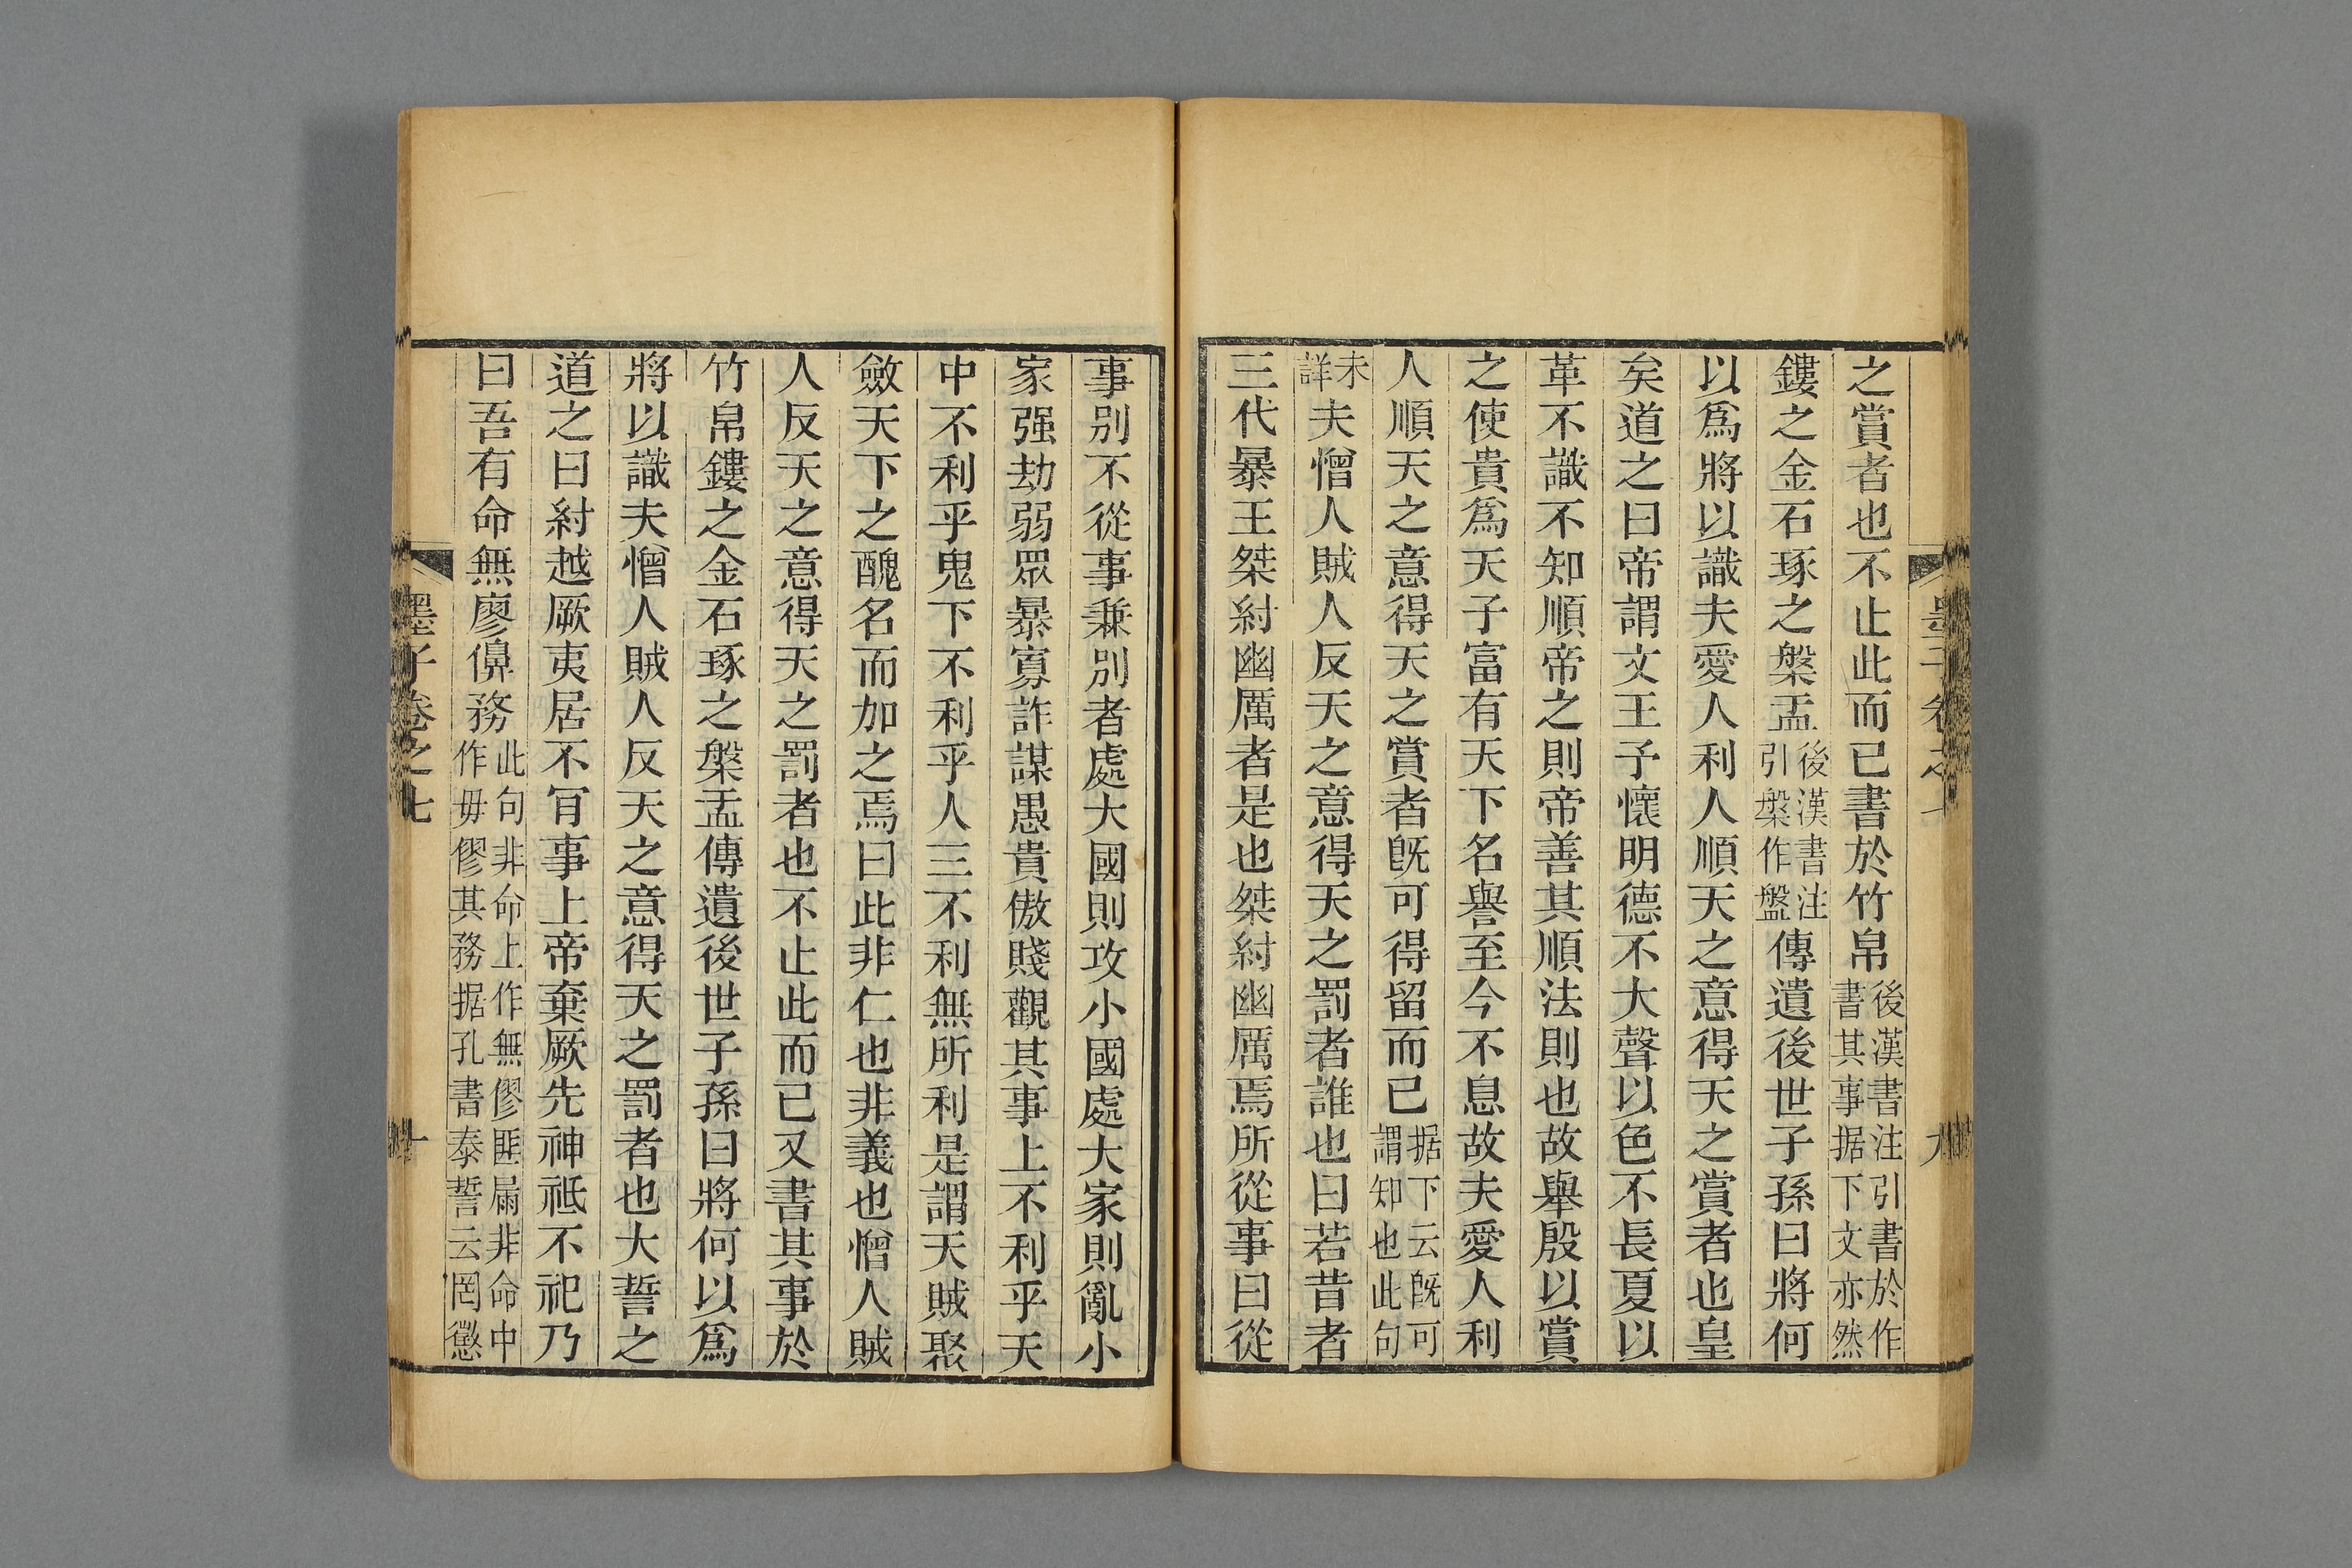 之賞者也不止此而已書於竹帛後漢書注引書於作書其事据下文亦然
鏤之金石琢之槃盂後漢書注引槃作盤傳遺後世子孫曰將何
以爲將以識夫愛人利人順天之意得天之賞者也皇
矣道之曰帝謂文王予懷明德不大聲以色不長夏以
革不識不知順帝之則帝善其順法則也故舉殷以賞
之使貴爲天子富有天下名譽至今不息故夫愛人利
人順天之意得天之賞者旣可得留而已据下云旣可謂知也此句
未詳夫憎人賊人反天之意得天之罰者誰也曰若昔者
三代暴王桀紂幽厲者是也桀紂幽厲焉所從事曰從
事別不從事兼別者處大國則攻小國處大家則亂小
家强劫弱眾暴寡詐謀愚貴傲賤觀其事上不利乎天
中不利乎鬼下不利乎人三不利無所利是謂天賊聚
斂天下之醜名而加之焉曰此非仁也非義也憎人賊
人反天之意得天之罰者也不止此而已又書其事於
竹帛鏤之金石琢之槃盂傳遺後世子孫曰將何以爲
將以識夫憎人賊人反天之意得天之罰者也大誓之
道之曰紂越厥夷居不肎事上帝棄厥先神祗不祀乃
曰吾有命無廖僞務此句非命上作無僇匪扁非命中作毋僇其務据孔書泰誓云罔懲
墨子卷之七
十